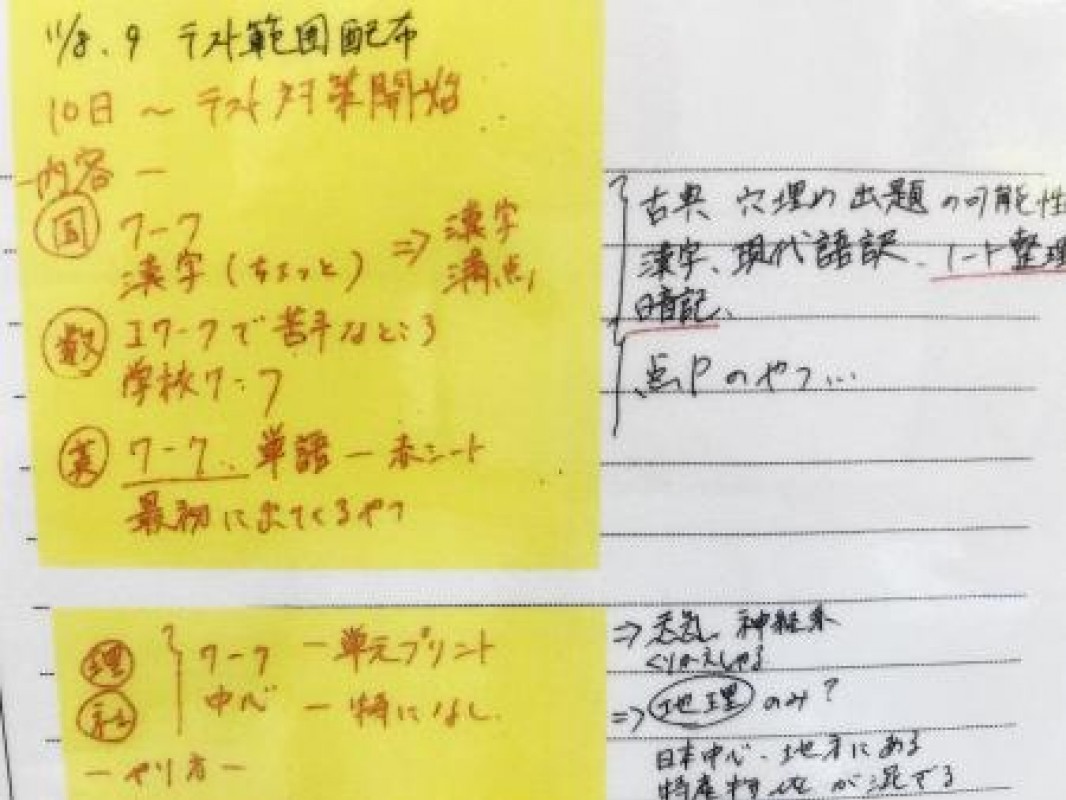 11/8.9 テスト範囲配布
10日～テスト対策開始
－内容－
国 ワーク
漢字(ちょっと) ⇒ 漢字
満点
古典 穴埋め 出題の可能性
漢字、現代語訳、ノート整理
暗記、
数 ワークで苦手なところ
学校ワーク
点Pのやつ…
英 ワーク、単語－赤シート
最初に出てくるやつ
理 ワーク －単元プリント
社 中心 －特になし
⇒ 神経系
くりかえしやる
⇒ 地理のみ?
日本中心・地方にある
特産物 が混ざる
－やり方－